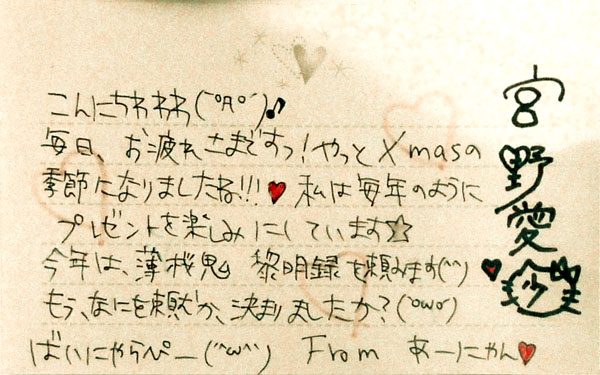 こんにちわわわ(ﾟДﾟ)♪
毎日、お疲れさまですっ!やっとXmasの
季節になりましたね!!!♥私は毎年のように
プレゼントを楽しみにしています☆
今年は、薄桜鬼 黎明録を頼みます(^^)♥
もう、なにを頼むか、決まりましたか?(^oωo^)
ばいにゃらぺー(^ω^) From あーにゃん♥
宮野愛